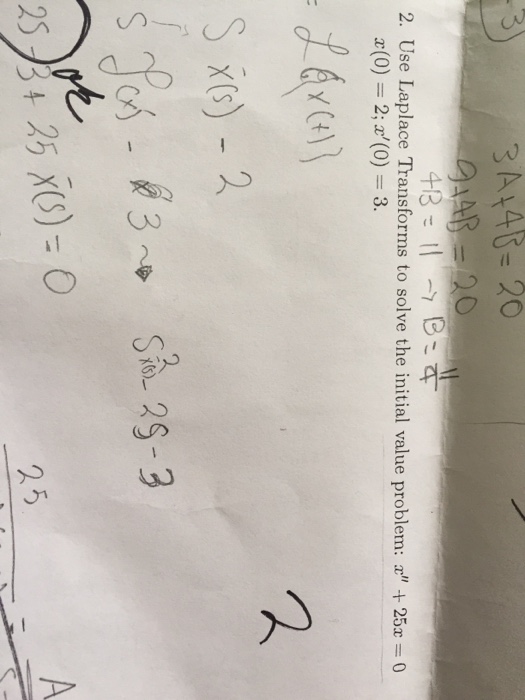 3)
3A+4B = 20
9+4B = 20
4B = 11 → B = 11/4
2. Use Laplace Transforms to solve the initial value problem: x″ + 25x = 0
x(0) = 2; x′(0) = 3.
= L{x(t)}
S x̄(s) - 2
2
3 → S² x̄(s) - 2S - 3
ok
2S - 3 + 25 x̄(s) = 0
25
= A